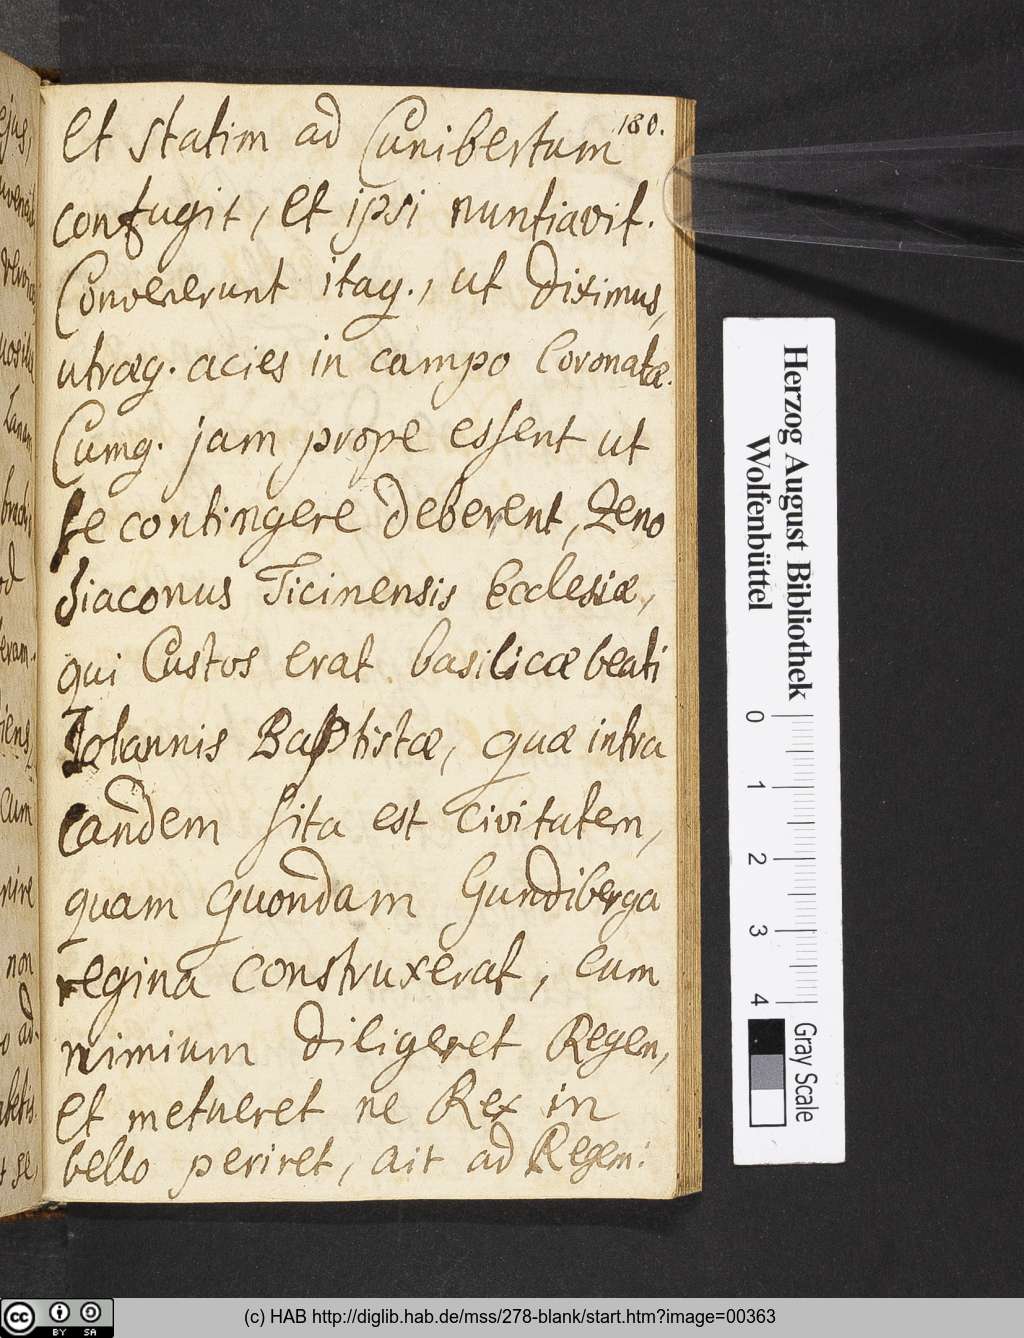 180.
Et statim ad Cunibertum
confugit, et ipsi nuntiavit.
Convenerunt itaq., ut diximus,
utræq. acies in campo Coronatæ.
Cumq. jam prope essent ut
se contingere deberent, Zeno
diaconus Ticinensis Ecclesiæ,
qui Custos erat basilicæ beati
Iohannis Baptistæ, quæ intra
eandem sita est civitatem,
quam quondam Gundiberga
regina construxerat, cum
nimium diligeret Regem,
et metueret ne Rex in
bello periret, ait ad Regem:
ejus,
cum
nire
non
ad-
se
Herzog August Bibliothek
Wolfenbüttel
0 1 2 3 4
Gray Scale
cc BY SA
(c) HAB http://diglib.hab.de/mss/278-blank/start.htm?image=00363